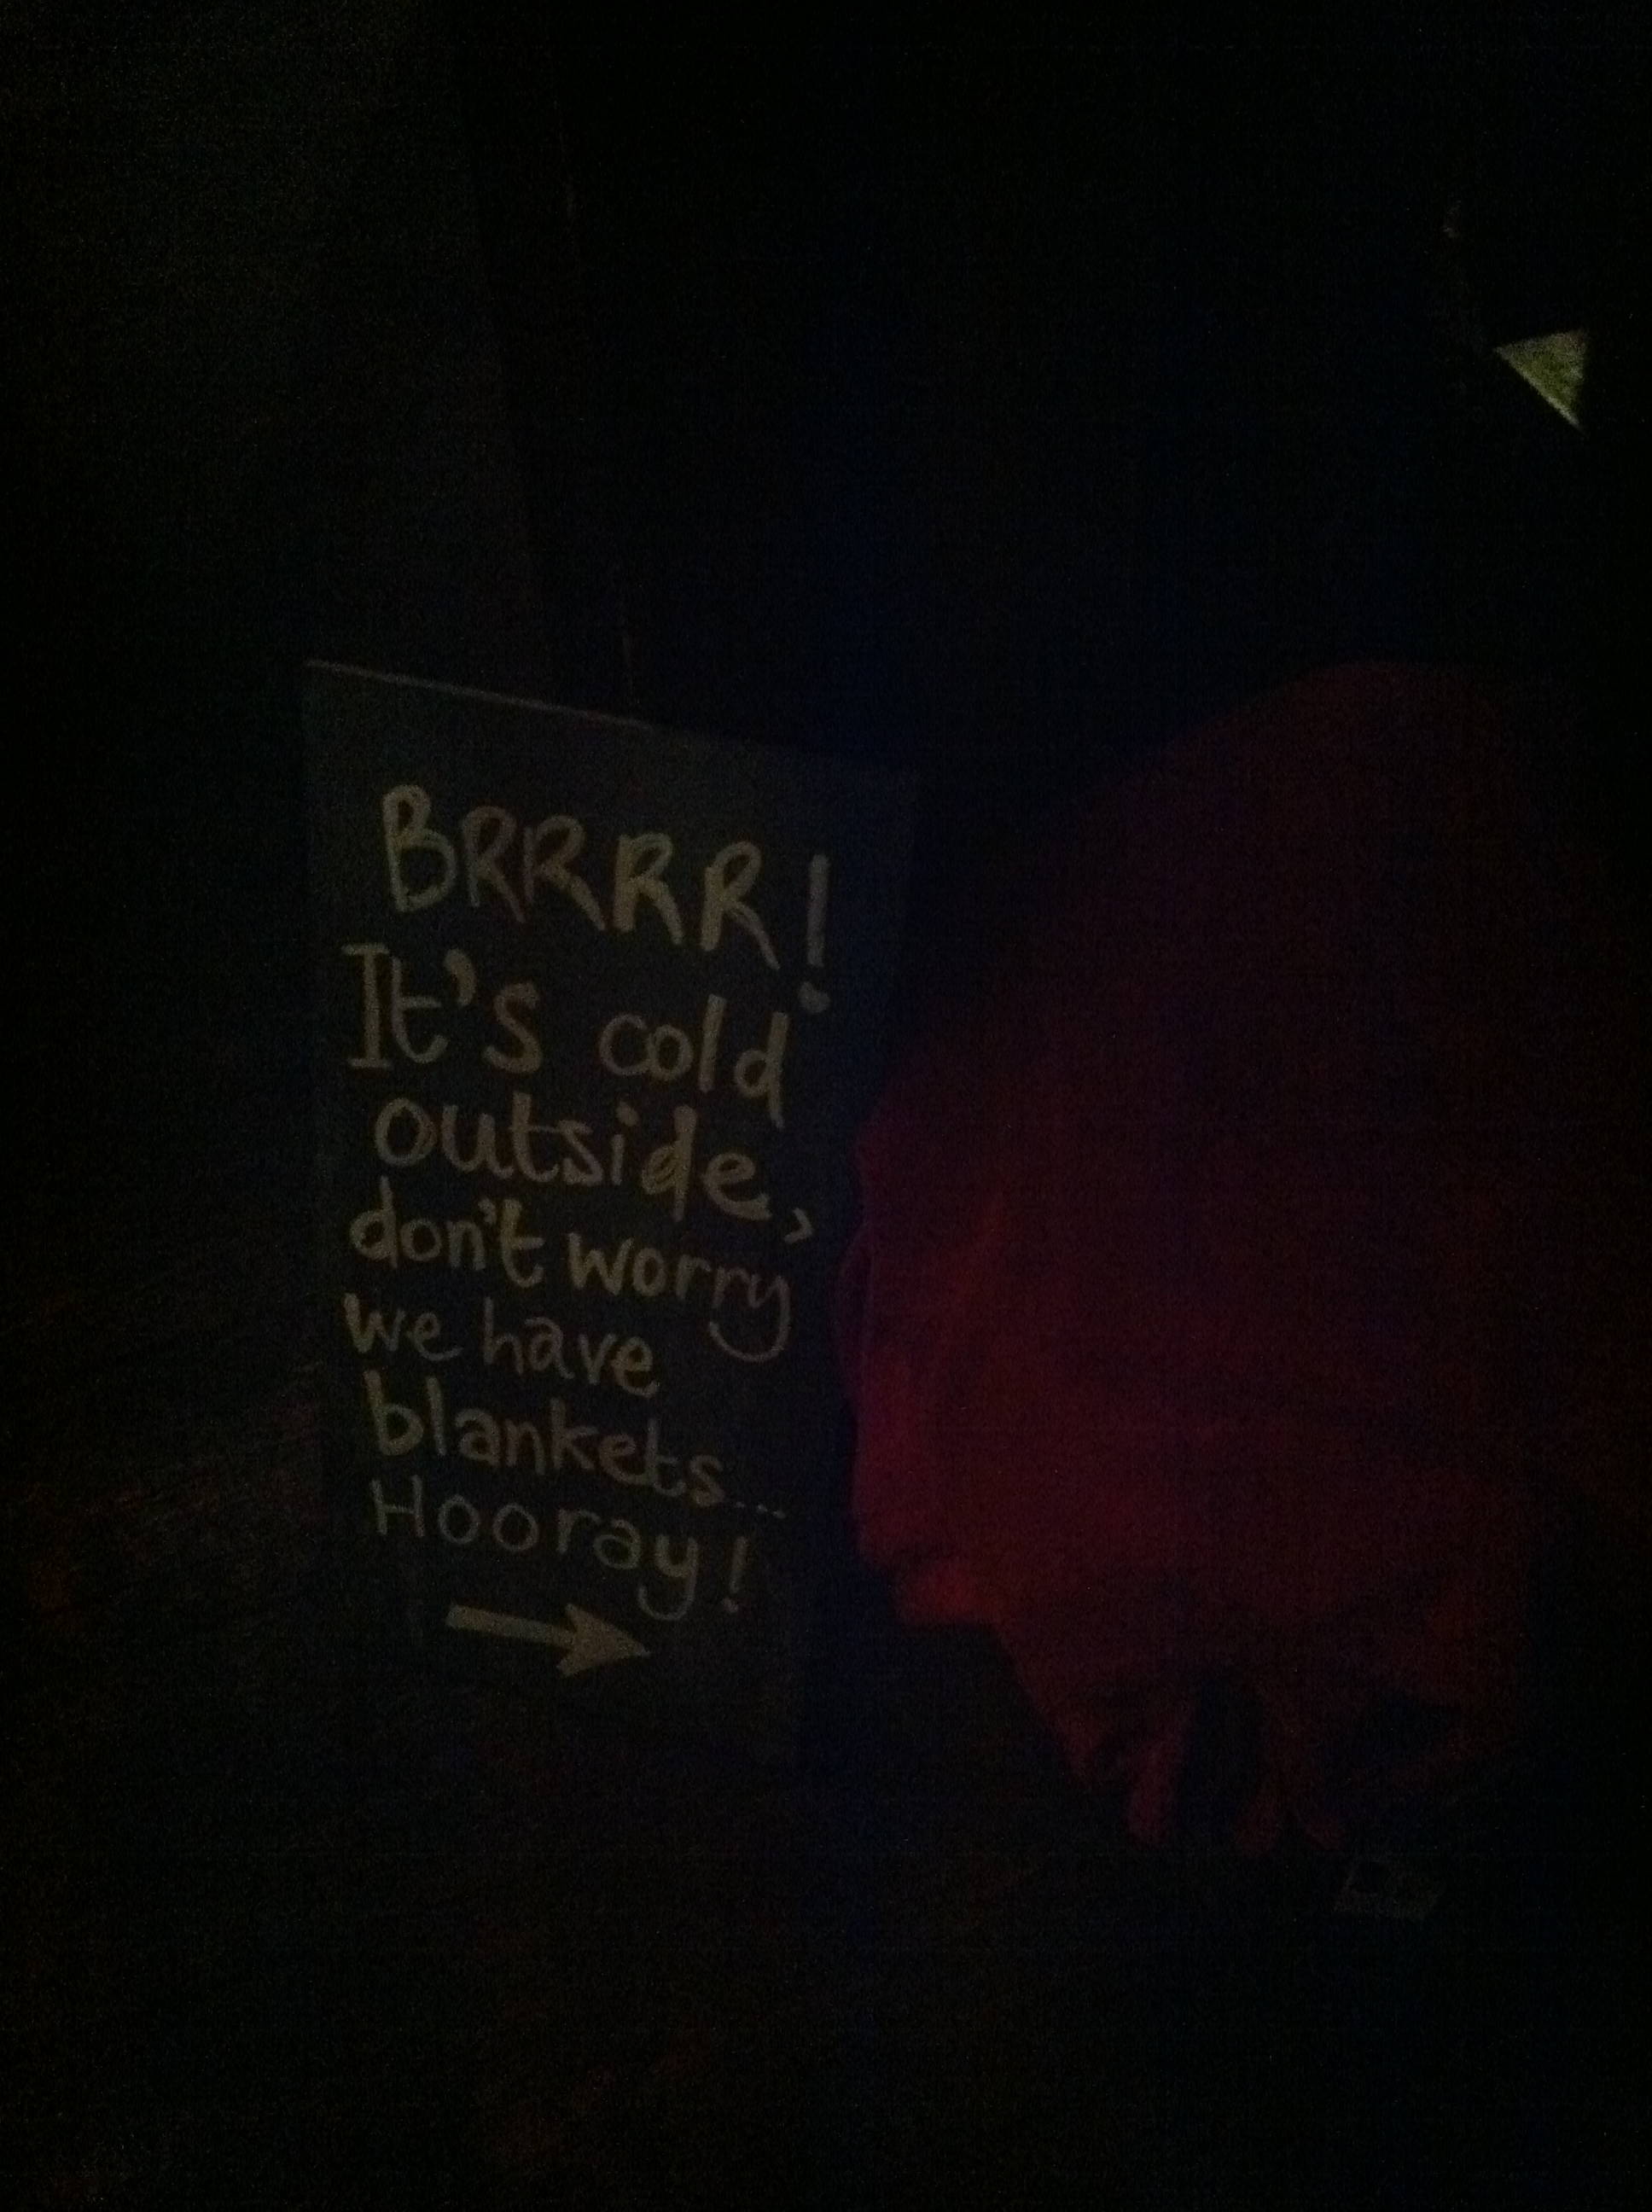 BRRRR!
It's cold
outside,
don't worry
we have
blankets...
Hooray!